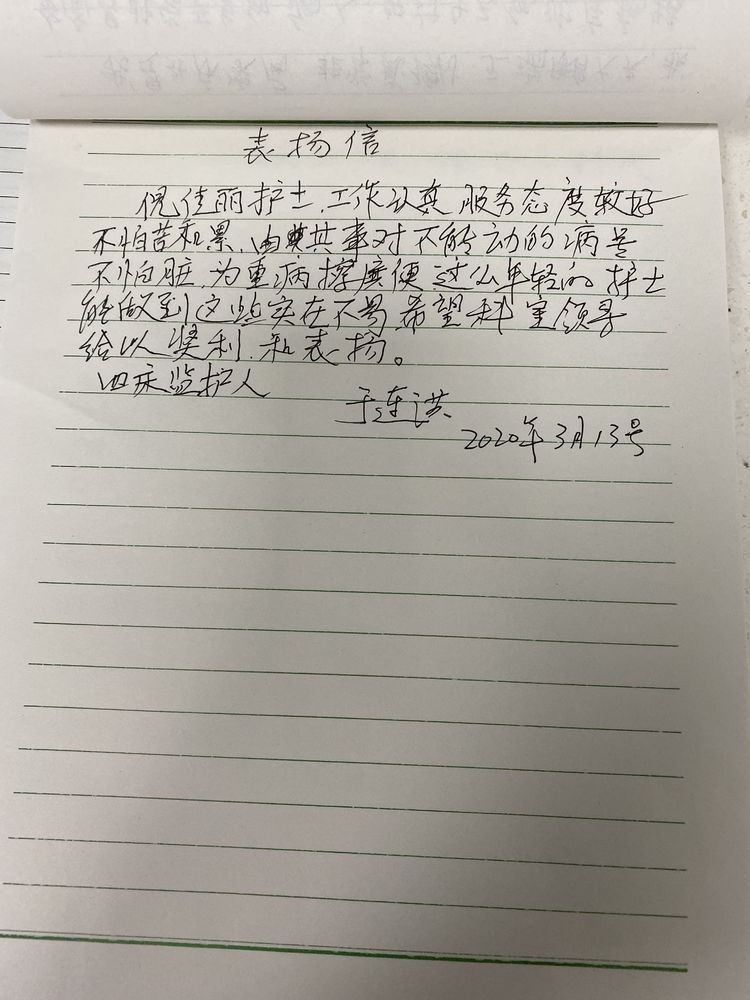 表扬信
倪佳丽护士.工作认真服务态度较好
不怕苦和累.由其共事对不能动的病号
不怕脏.为重病擦屎便这么年轻的护士
能做到这些实在不易希望科室领导
给以奖利.和表扬。
四床监护人
于连洪
2020年3月13号